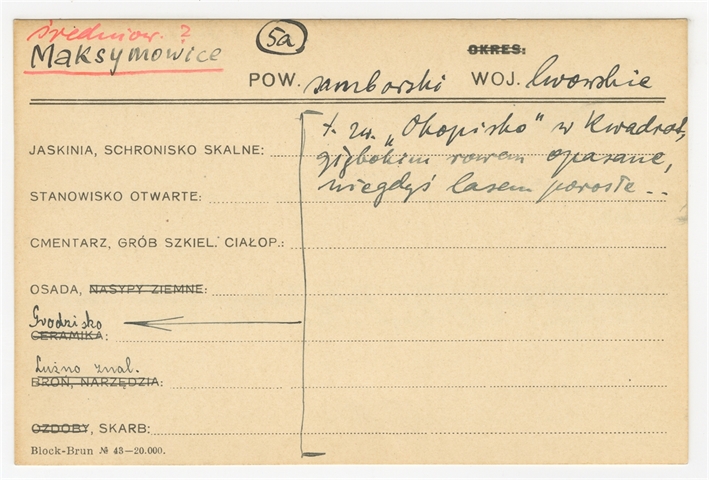 średniow. ?
Maksymowice
5a
OKRES:
POW. samborski WOJ. lwowskie
t. zw. „Okopisko" w kwadrat,
głębokim rowem opasane,
niegdyś lasem porosłe...
JASKINIA, SCHRONISKO SKALNE:
STANOWISKO OTWARTE:
CMENTARZ, GRÓB SZKIEL. CIAŁOP.:
OSADA, NASYPY ZIEMNE:
Grodzisko
CERAMIKA:
Luźno znal.
BROŃ, NARZĘDZIA:
OZDOBY, SKARB:
Block-Brun № 43—20.000.